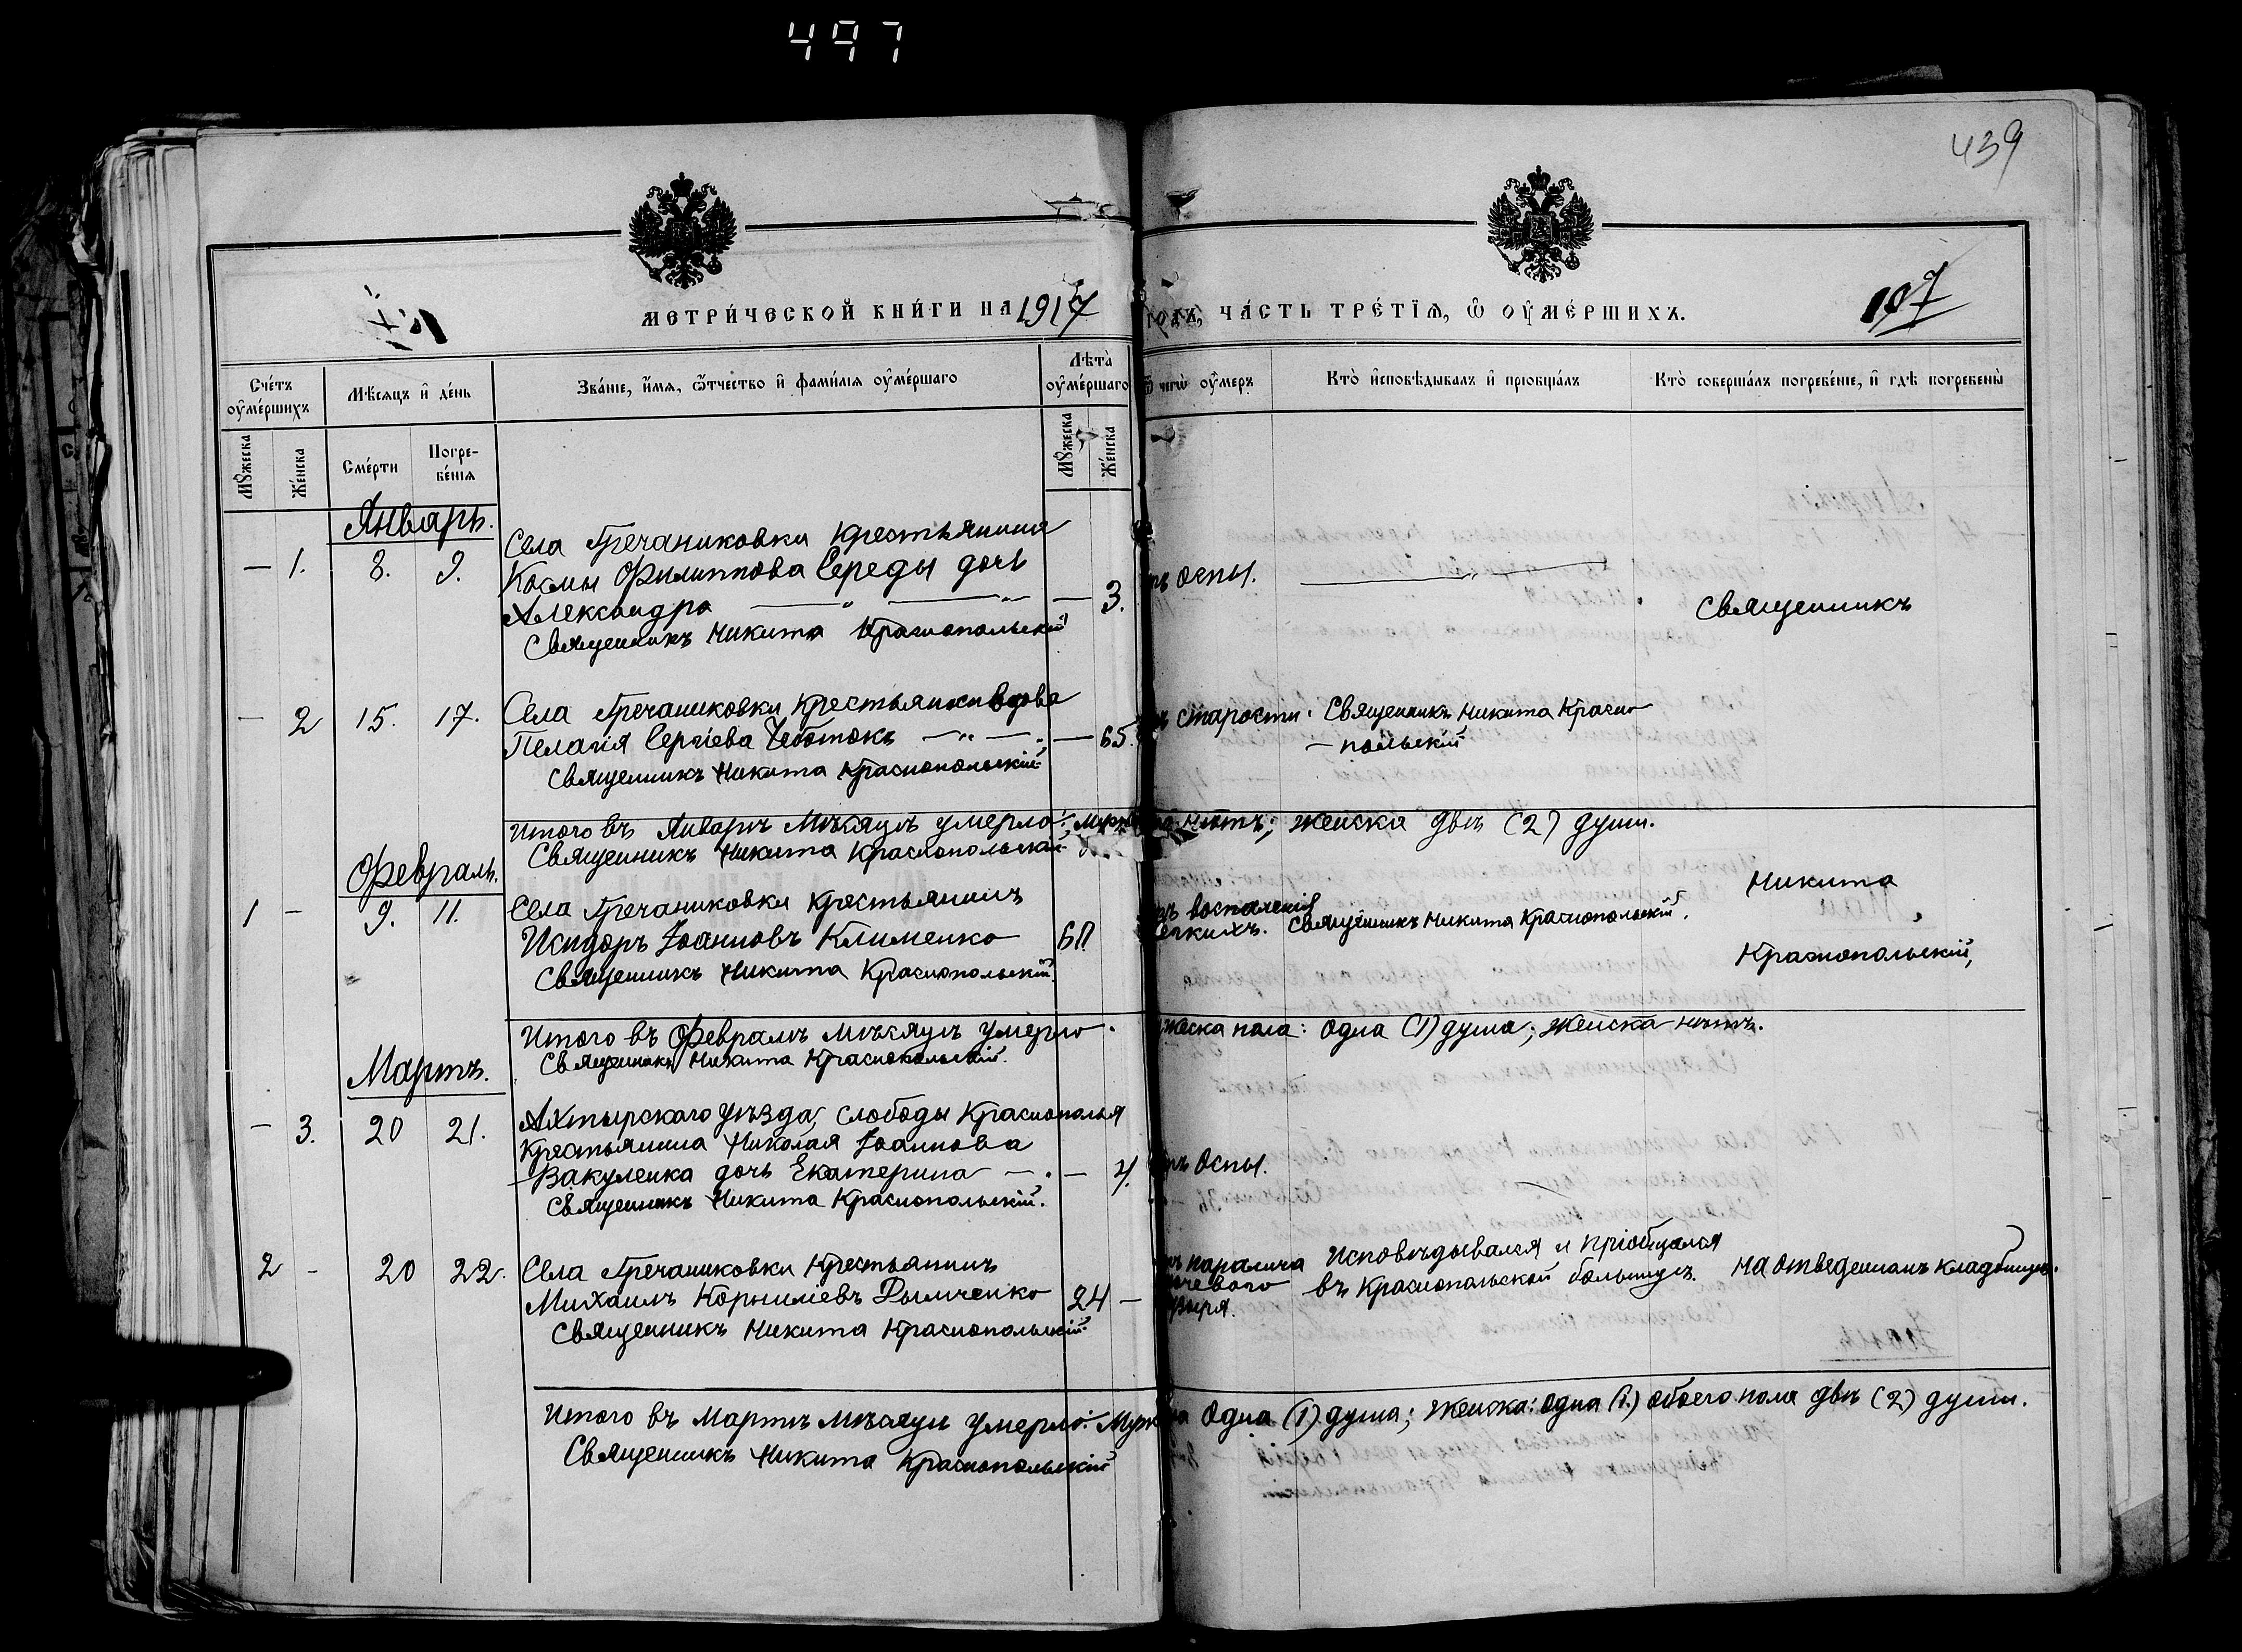 497
439
МЕТРИ́ЧЕСКОЙ КНИ́ГИ НА 1917 ГОДЪ, ЧА́СТЬ ТРЕ́ТЇѦ, Ѿ ОУ҆МЕ́РШИХЪ.
107
Сче́тъ оу҆ме́ршихъ
Мѣ́сяцъ и҆ де́нь
Зва́нїе, и҆́мя, ѻ҆́тчество и҆ фами́лїя оу҆ме́ршаго
Лѣта̀ оу҆ме́ршаго
Ѿ чегѡ̀ оу҆́меръ
Кто̀ и҆сповѣ́дывалъ и҆ прїобща́лъ
Кто̀ соверша́лъ погребе́нїе, и҆ гдѣ̀ погребены̀
Мꙋ́жеска
Же́нска
Сме́рти
Погре-
бе́нїя
Мꙋ́жеска
Же́нска
Январь.
— 1. 8. 9. Села Гречаниковки крестьянина
Космы Филиппова Середы дочь
Александра — 3. отъ оспы.
Священникъ Никита Краснопольскій
Священникъ
— 2 15. 17. Села Гречаниковки крестьянки вдова
Пелагія Сергіева Чеботокъ — 65. отъ старости. Священникъ Никита Красно-
-польскій
Священникъ Никита Краснопольскій
Итого въ Январѣ мѣсяцѣ умерло: мужеска нѣтъ; женска двѣ (2) души.
Священникъ Никита Краснопольскій
Февраль.
1 — 9. 11. Села Гречаниковки крестьянинъ
Исидоръ Іоанновъ Клименко
отъ воспаленія
легкихъ. Священникъ Никита Краснопольскій.
Священникъ Никита Краснопольскій
Никита
Краснопольскій,
Итого въ Февралѣ мѣсяцѣ умерло: мужеска пола: одна (1) душа; женска нѣтъ.
Священникъ Никита Краснопольскій.
Мартъ.
— 3. 20 21. Ахтырскаго уѣзда, слободы Краснополья
крестьянина Николая Іоаннова
Вакуленка дочь Екатерина — отъ оспы.
Священникъ Никита Краснопольскій.
2 — 20 22. Села Гречаниковки крестьянинъ
Михаилъ Корнилиевъ Дымченко 24 —
Священникъ Никита Краснопольскій
отъ паралича
мочевого
пузыря.
Исповѣдывался и пріобщался
въ Краснопольской больницѣ.
на отведенномъ кладбищѣ.
Итого въ Мартѣ мѣсяцѣ умерло: мужеска одна (1) душа; женска: одна (1.) обоего пола двѣ (2) души.
Священникъ Никита Краснопольскій